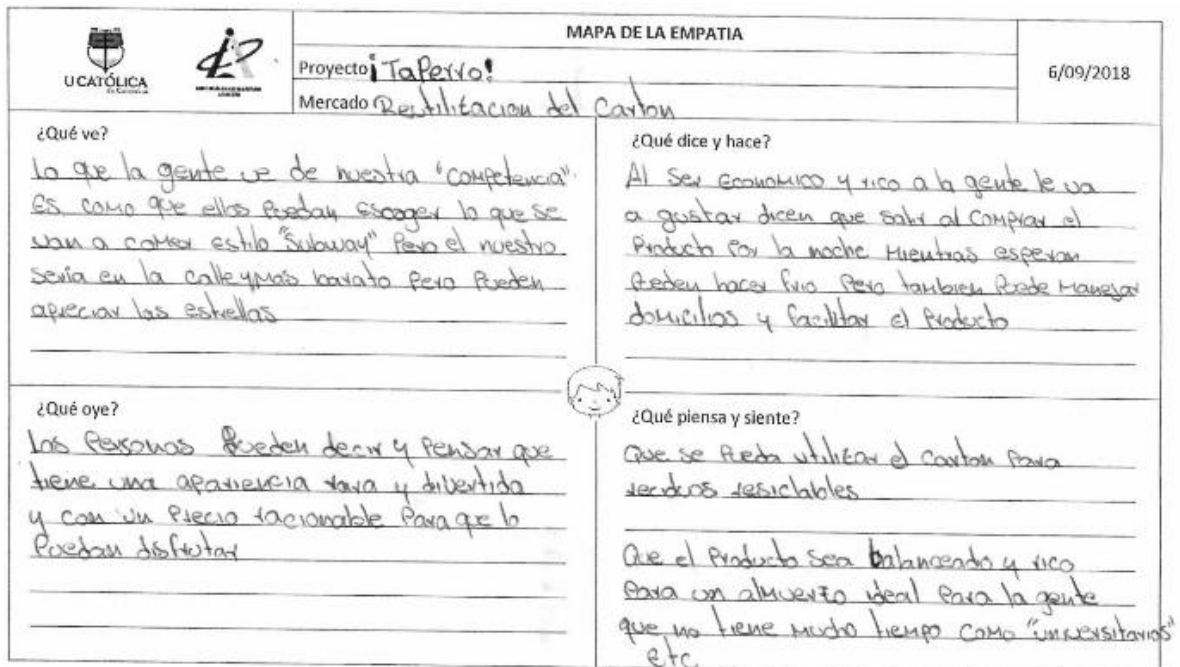 MAPA DE LA EMPATIA
U CATÓLICA
Proyecto ¡TaPerro!
6/09/2018
Mercado Reutilitacion del Carton
¿Qué ve?
Lo que la gente ve de nuestra "competencia".
Es como que ellos Puedan escoger lo que se
van a comer estilo "Subway" Pero el nuestro
seria en la calle y mas barato Pero Pueden
apreciar las estrellas
¿Qué dice y hace?
Al Ser Economico y rico a la gente le va
a gustar dicen que salir al comprar el
Producto Por la noche Mientras esperan
Pueden hacer frio Pero tambien Puede Manejar
domicilios y facilitar el Producto
¿Qué oye?
Las Personas Pueden decir y Pensar que
tiene una apariencia rara y divertida
y con un Precio racionable Para que lo
Puedan disfrutar
¿Qué piensa y siente?
Que se Pueda utilizar el Carton Para
reciduos resiclables
Que el Producto Sea balanceado y rico
Para un almuerzo ideal Para la gente
que no tiene mucho tiempo como "universitarios"
etc.